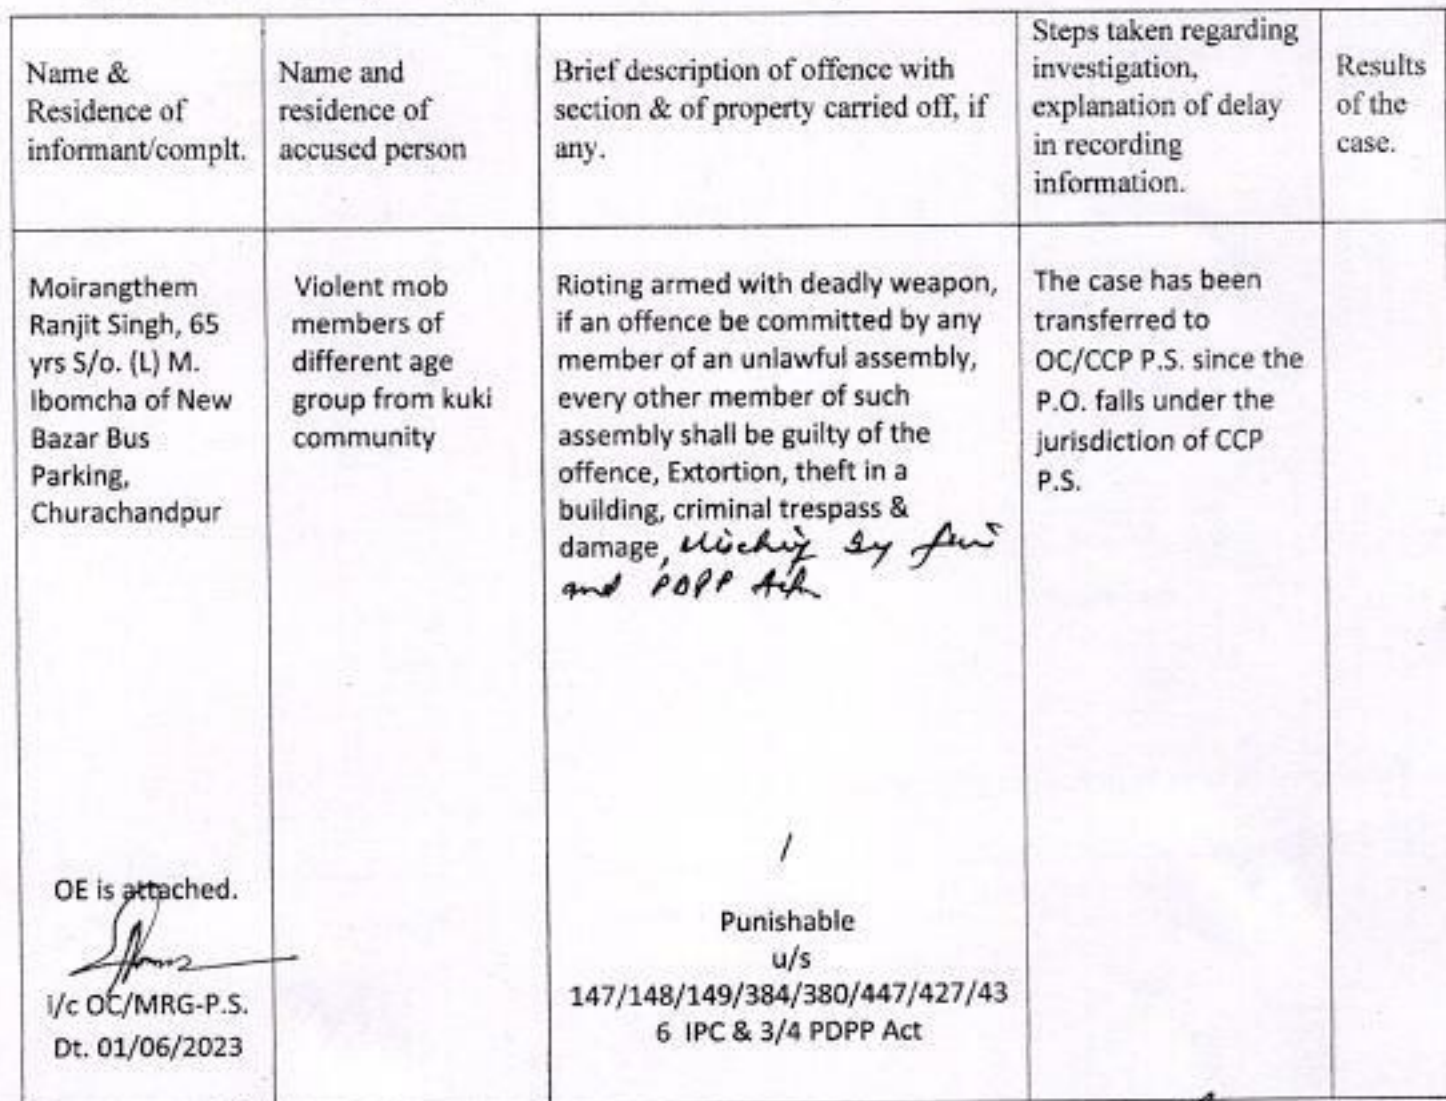 Name &
Residence of
informant/complt.
Name and
residence of
accused person
Brief description of offence with
section & of property carried off, if
any.
Steps taken regarding
investigation,
explanation of delay
in recording
information.
Results
of the
case.
Moirangthem
Ranjit Singh, 65
yrs S/o. (L) M.
Ibomcha of New
Bazar Bus
Parking,
Churachandpur
OE is attached.
i/c OC/MRG-P.S.
Dt. 01/06/2023
Violent mob
members of
different age
group from kuki
community
Rioting armed with deadly weapon,
if an offence be committed by any
member of an unlawful assembly,
every other member of such
assembly shall be guilty of the
offence, Extortion, theft in a
building, criminal trespass &
damage, by
and PDPP Act
Punishable
u/s
147/148/149/384/380/447/427/43
6 IPC & 3/4 PDPP Act
The case has been
transferred to
OC/CCP P.S. since the
P.O. falls under the
jurisdiction of CCP
P.S.